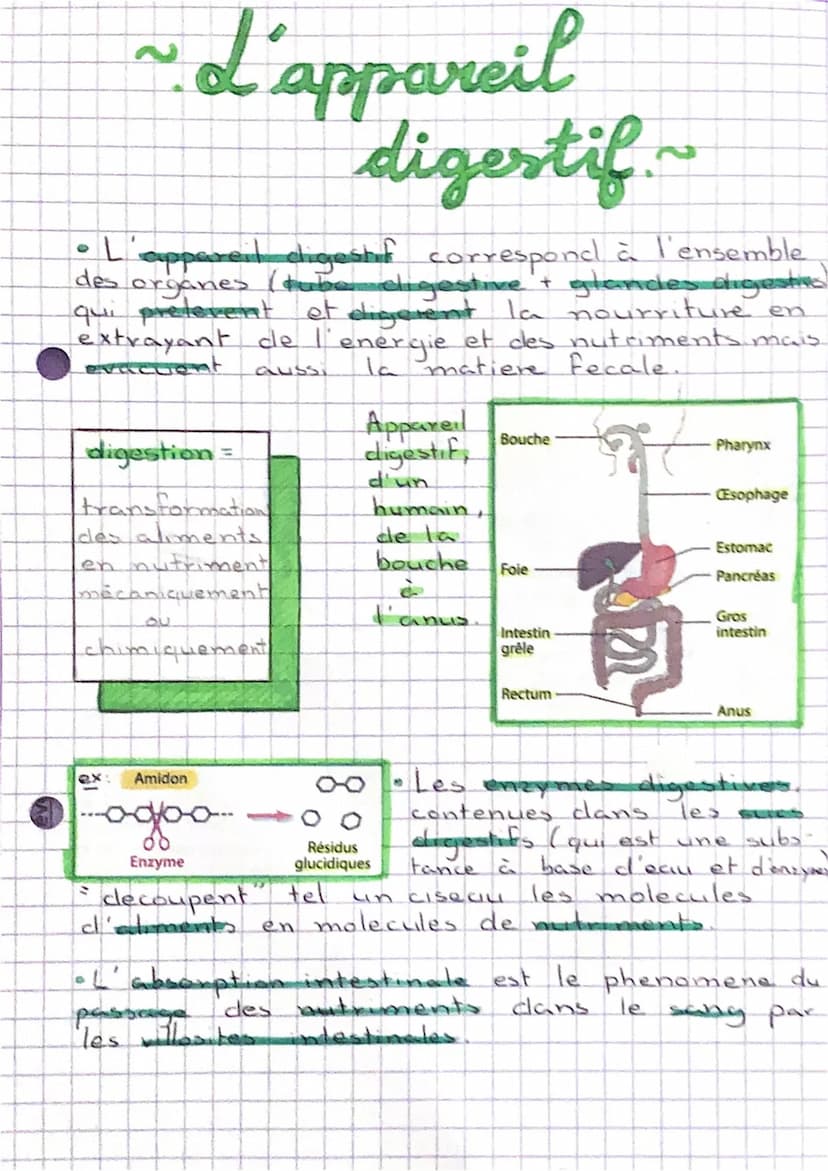 ~. L'appareil
digestif. ~
• L'appareil digestif correspond à l'ensemble
des organes (tube digestive + glandes digestives)
qui prelevent et digerent la nourriture en
extrayant de l'energie et des nutriments mais
evacuent aussi la matiere fecale.
digestion =
transformation
des aliments
en nutriment
mécaniquement
ou
chimiquement
Appareil
digestif,
d'un
humain,
de la
bouche
à
l'anus.
Bouche
Pharynx
Œsophage
Estomac
Foie
Pancréas
Gros
intestin
Intestin
grêle
Rectum
Anus
ex: Amidon
Enzyme
Résidus
glucidiques
• Les enzymes digestives,
contenues dans les sucs
digestifs (qui est une subs-
tance à base d'eau et d'enzyme)
"decoupent" tel un ciseau les molecules
d'aliments en molecules de nutriments.
• L'absorption intestinale est le phenomene du
passage des nutriments dans le sang par
les villosites intestinales.